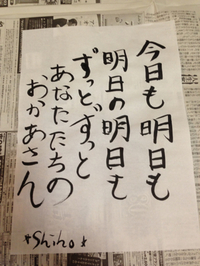 今日も明日も
明日の明日も
ずっと、ずっと
あなたたちの
おかあさん
*Shiho*